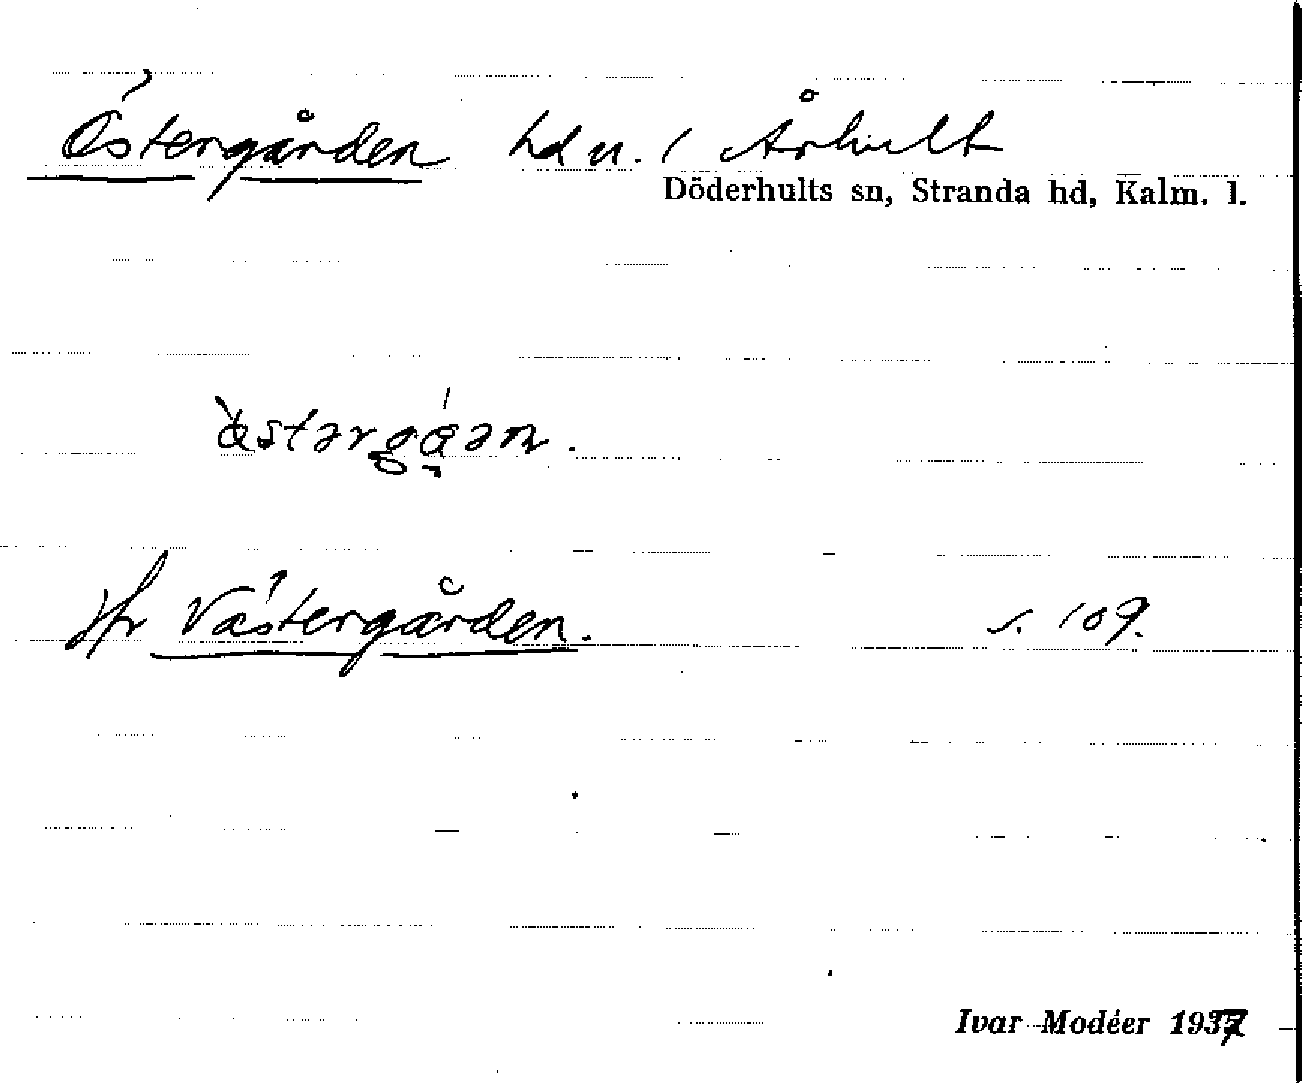 Östergården hdn. / Århult
Döderhults sn, Stranda hd, Kalm. l.
jfr Västergården. s. 109.
Ivar Modéer 1937